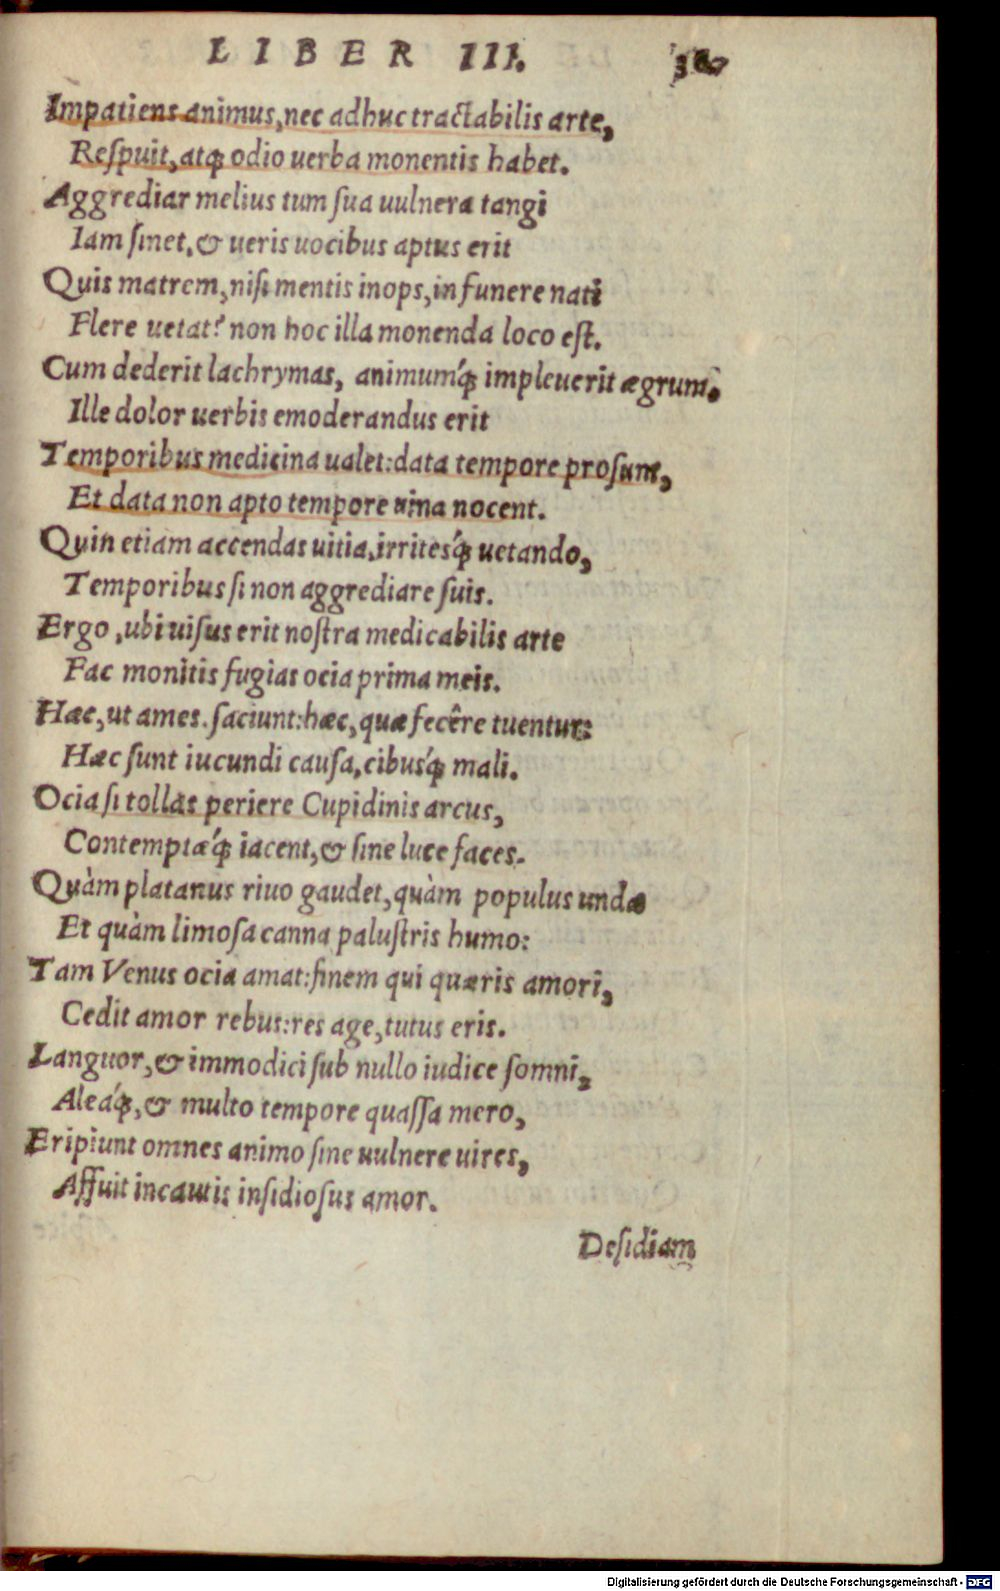 LIBER III.
Impatiens animus, nec adhuc tractabilis arte,
Respuit, atq; odio uerba monentis habet.
Aggrediar melius tum sua uulnera tangi
Iam sinet, & ueris uocibus aptus erit
Quis matrem, nisi mentis inops, in funere nati
Flere uetat? non hoc illa monenda loco est.
Cum dederit lachrymas, animumq́; impleuerit ægrum.
Ille dolor uerbis emoderandus erit
Temporibus medicina ualet: data tempore prosunt,
Et data non apto tempore uina nocent.
Quin etiam accendas uitia, irritesq́; uetando,
Temporibus si non aggrediare suis.
Ergo, ubi uisus erit nostra medicabilis arte
Fac monitis fugias ocia prima meis.
Hæc, ut ames. faciunt: hæc, quæ fecêre tuentur:
Hæc sunt iucundi causa, cibusq́; mali.
Ocia si tollas periere Cupidinis arcus,
Contemptæq́; iacent, & sine luce faces.
Quàm platanus riuo gaudet, quàm populus unda
Et quàm limosa canna palustris humo:
Tam Venus ocia amat: finem qui quæris amori,
Cedit amor rebus: res age, tutus eris.
Languor, & immodici sub nullo iudice somni,
Aleaq́;, & multo tempore quassa mero,
Eripiunt omnes animo sine uulnere uires,
Affuit incautis insidiosus amor.
Desidiam
Digitalisierung gefördert durch die Deutsche Forschungsgemeinschaft - DFG